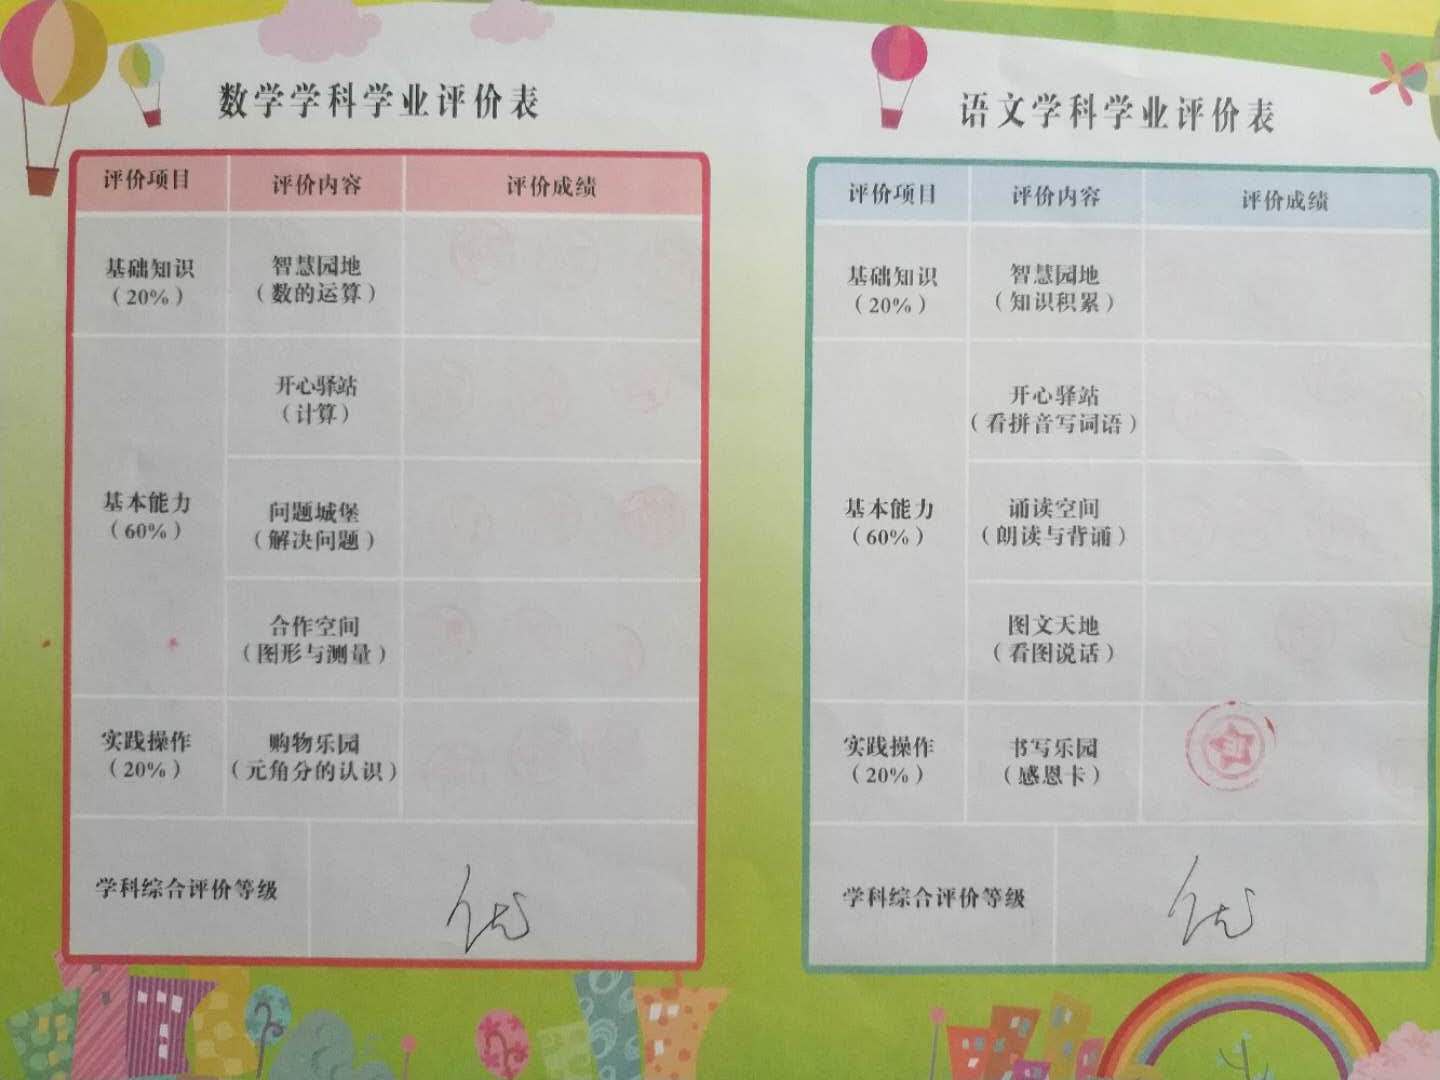 数学学科学业评价表
评价项目 评价内容 评价成绩
基础知识
（20%）
智慧园地
（数的运算）
基本能力
（60%）
开心驿站
（计算）
问题城堡
（解决问题）
合作空间
（图形与测量）
实践操作
（20%）
购物乐园
（元角分的认识）
学科综合评价等级
优
语文学科学业评价表
评价项目 评价内容 评价成绩
基础知识
（20%）
智慧园地
（知识积累）
基本能力
（60%）
开心驿站
（看拼音写词语）
诵读空间
（朗读与背诵）
图文天地
（看图说话）
实践操作
（20%）
书写乐园
（感恩卡）
学科综合评价等级
优